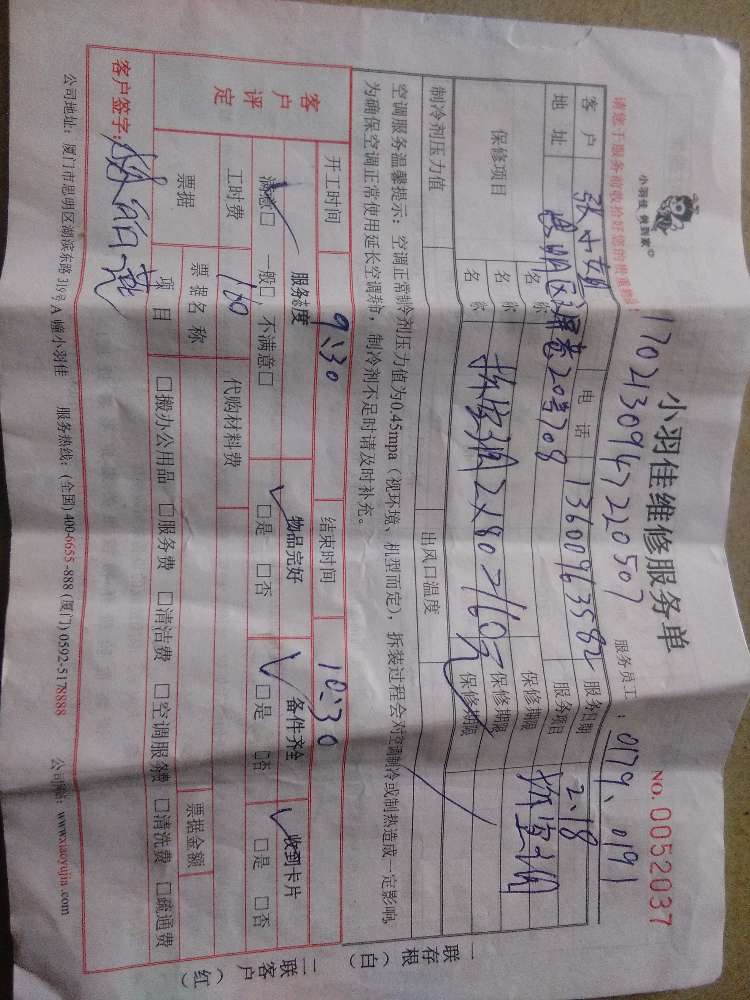 小羽佳 佳到家
小羽佳维修服务单
NO. 0052037
请您于服务前收拾好您的贵重物品
1702130947220507
服务员工：0179、0191
客户 张小姐 电话 13600963582 服务日期 2.18
地址 思明区 20号708 服务项目 拆空调
保修项目 名称 保修期限
名称 拆空调2×80=160元 保修期限
名称 保修期限
制冷剂压力值 出风口温度
空调服务温馨提示：空调正常制冷剂压力值为0.45mpa（视环境、机型而定），拆装过程会对空调制冷或制热造成一定影响，
为确保空调正常使用延长空调寿命，制冷剂不足时请及时补充。
开工时间 9:30 结束时间 10:30
客户评定 服务态度 物品完好 备件齐全 收到卡片
满意□ 一般□ 不满意□ □是 □否 □是 □否 □是 □否
工时费 160 代购材料费
票据 票据名称 票据金额
项目 □搬办公用品 □服务费 □清洁费 □空调服务费 □清洗费 □疏通费
客户签字：
公司地址：厦门市思明区湖滨东路319号A幢小羽佳 服务热线：(全国) 400-6655-888 (厦门) 0592-5178888 公司网址：www.xiaoyujia.com
一联存根（白）
二联客户（红）